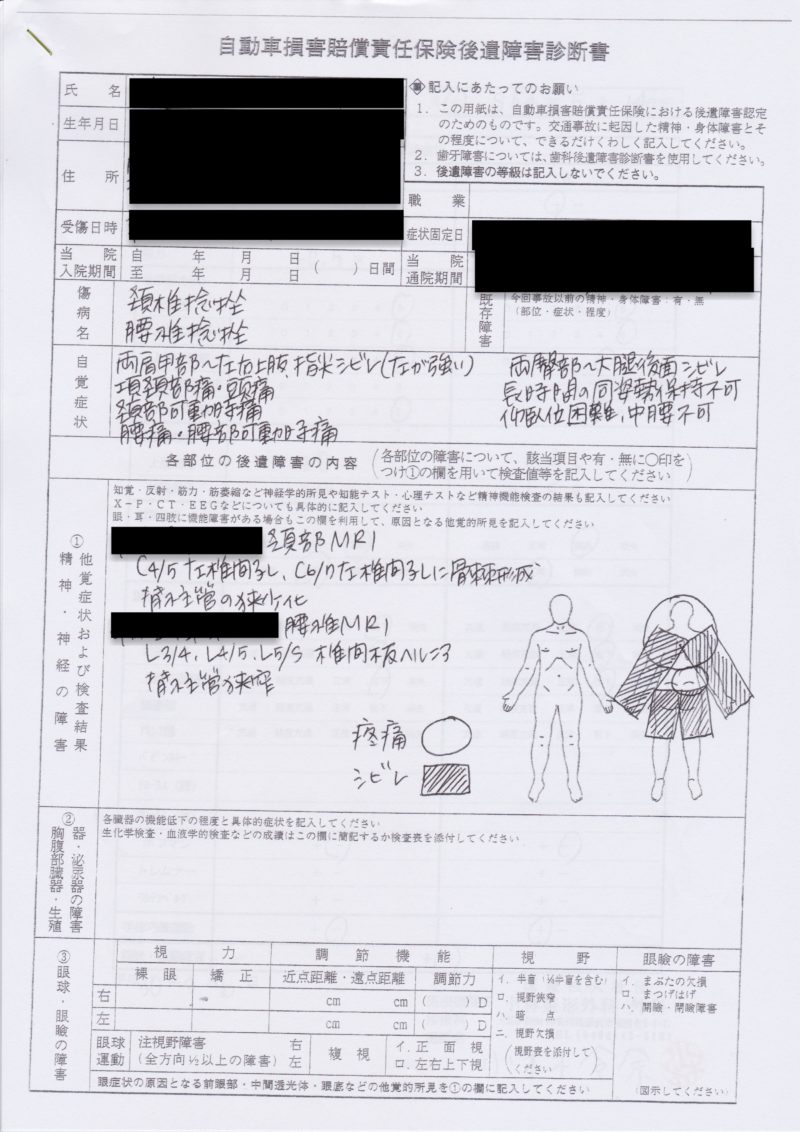 自動車損害賠償責任保険後遺障害診断書
氏 名
生年月日
住 所
受傷日時
■記入にあたってのお願い
1. この用紙は、自動車損害賠償責任保険における後遺障害認定
のためのものです。交通事故に起因した精神・身体障害とそ
の程度について、できるだけくわしく記入してください。
2. 歯牙障害については、歯科後遺障害診断書を使用してください。
3. 後遺障害の等級は記入しないでください。
職 業
症状固定日
当 院 入院期間 自 年 月 日
至 年 月 日 ( )日間
当 院 通院期間
傷病名
頚椎捻挫
腰椎捻挫
既存障害
今回事故以前の精神・身体障害:有・無
(部位・症状・程度)
自覚症状
両肩甲部〜左右上肢、指尖シビレ(左が強い)
項頚部痛・頭痛
頚部可動時痛
腰痛・腰部可動時痛
両臀部〜大腿後面シビレ
長時間の同姿勢保持不可
仰臥位困難、中腰不可
各部位の後遺障害の内容
(各部位の障害について、該当項目や有・無に○印を
つけ①の欄を用いて検査値等を記入してください)
①精神・神経の障害 他覚症状および検査結果
知覚・反射・筋力・筋萎縮など神経学的所見や知能テスト・心理テストなど精神機能検査の結果も記入してください
X-P・CT・EEGなどについても具体的に記入してください
眼・耳・四肢に機能障害がある場合もこの欄を利用して、原因となる他覚的所見を記入してください
頚部MRI
C4/5左椎間孔、C6/7左椎間孔に骨棘形成
脊柱管の狭小化
腰椎MRI
L3/4、L4/5、L5/S 椎間板ヘルニア
脊柱管狭窄
疼痛
シビレ
②胸腹部臓器・生殖器・泌尿器の障害
各臓器の機能低下の程度と具体的症状を記入してください
生化学検査・血液学的検査などの成績はこの欄に簡記するか検査表を添付してください
③眼球・眼瞼の障害
視 力 調 節 機 能 視 野 眼瞼の障害
裸 眼 矯 正 近点距離・遠点距離 調節力
右 cm cm ( )D
左 cm cm ( )D
イ. 半盲(¼半盲を含む)
ロ. 視野狭窄
ハ. 暗 点
ニ. 視野欠損
(視野表を添付してください)
イ. まぶたの欠損
ロ. まつげはげ
ハ. 開瞼・閉瞼障害
眼球運動 注視野障害 右
(全方向½以上の障害) 左
複 視 イ. 正 面 視
ロ. 左右上下視
眼症状の原因となる前眼部・中間透光体・眼底などの他覚的所見を①の欄に記入してください
(図示してください)